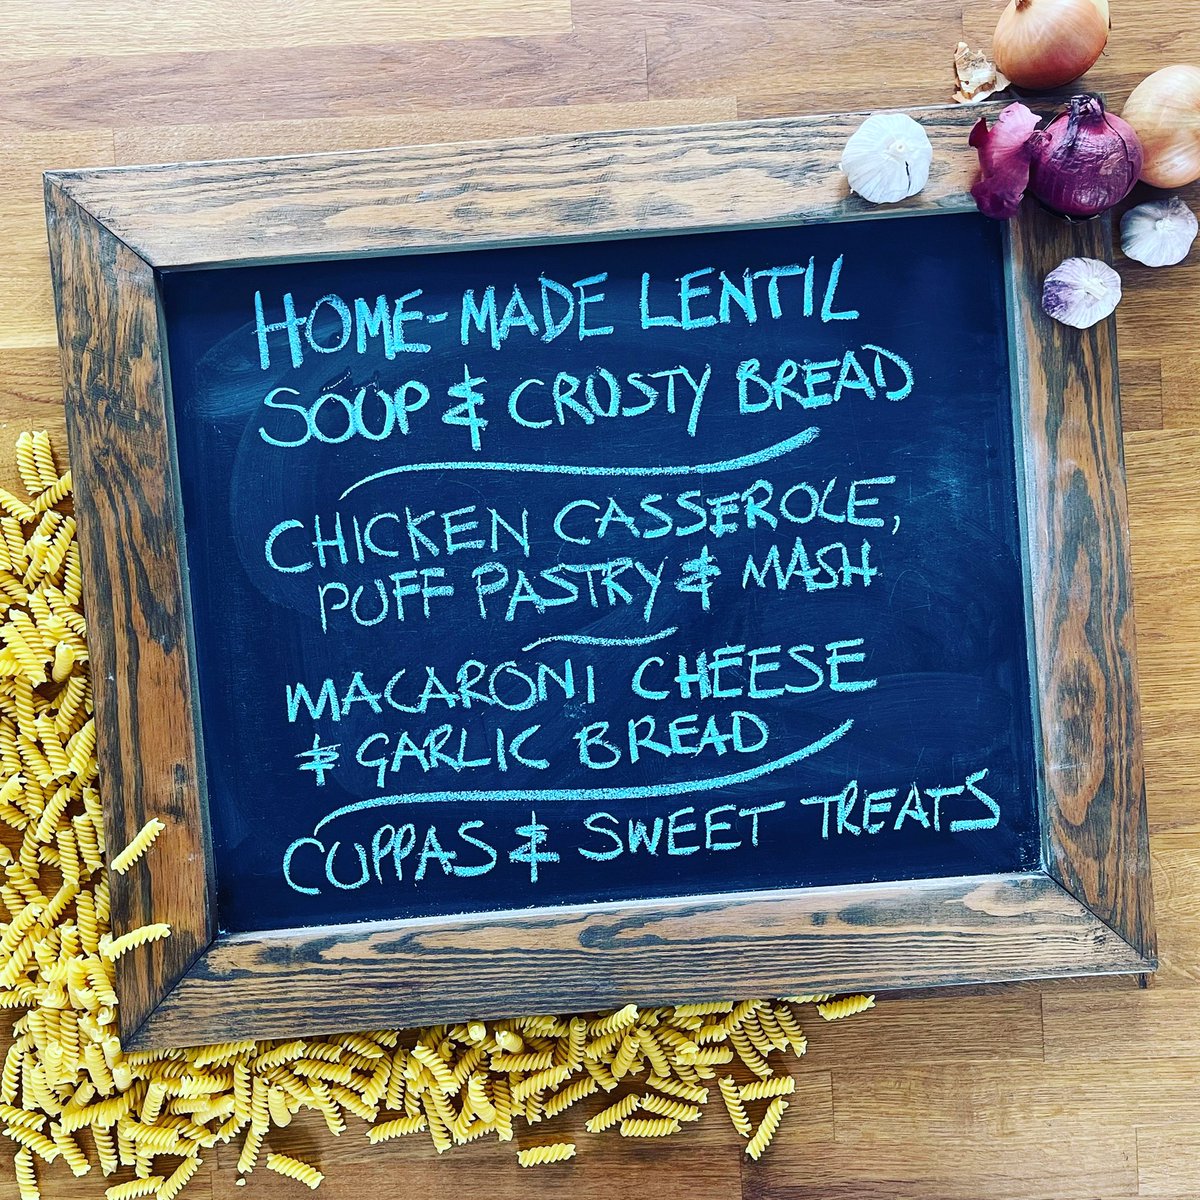 HOME-MADE LENTIL
SOUP & CRUSTY BREAD
CHICKEN CASSEROLE,
PUFF PASTRY & MASH
MACARONI CHEESE
& GARLIC BREAD
CUPPAS & SWEET TREATS